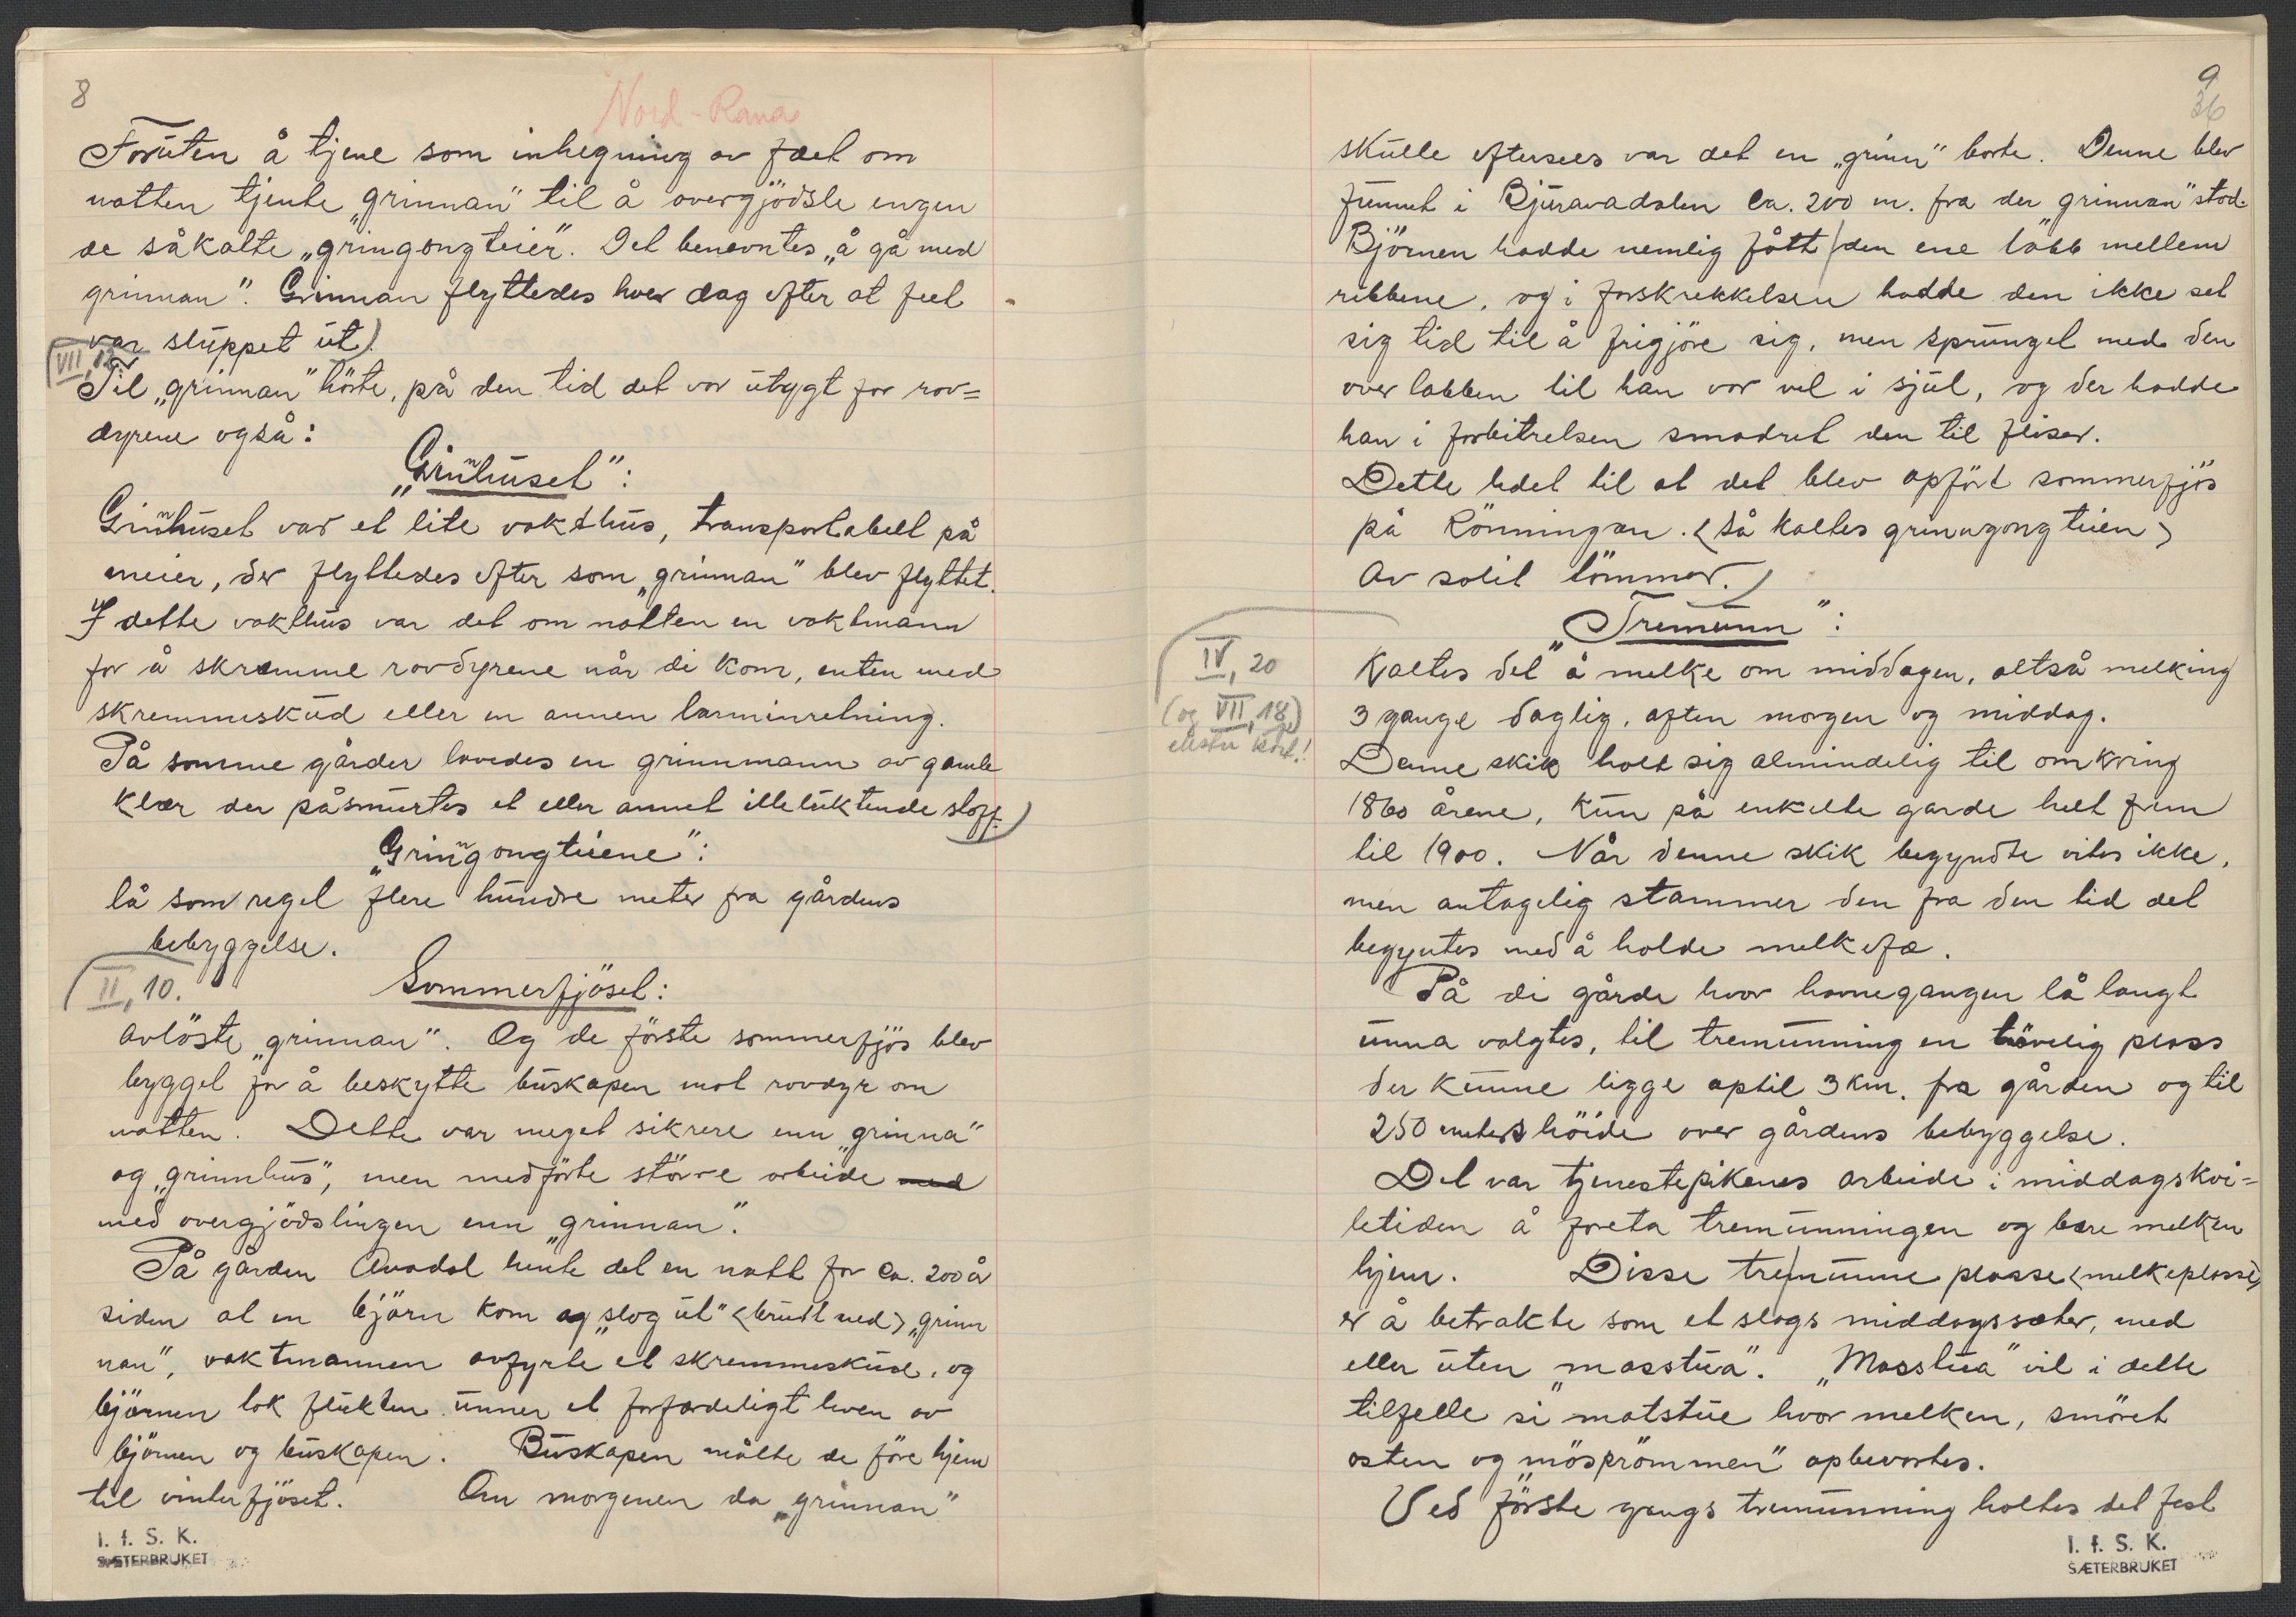 8
Nord-Rana
Foruten å tjene som inhegning av fæet om
natten tjente „grinnan" til å overgjödsle engen
de såkalte „gringongteier". Det benevntes „å gå med
grinnan". Grinnan flyttedes hver dag efter at feet
var sluppet ut)
VII, 18
Til „grinnan" hörte, på den tid det var utygt for rov=
dyrene også:
„Grinnhuset":
Grinnhuset var et lite vakthus, transportabelt på
meier, der flyttedes efter som „grinnan" blev flyttet.
I dette vakthus var det om natten en vaktmann
for å skræmme rovdyrene når di kom, enten med
skremmeskud eller en annen larminretning.
På somme gårder lavedes en grinnmann av gamle
klær der påsmurtes et eller annet illeluktende stoff.)
„Grinngongteiene":
lå som regel flere hundre meter fra gårdens
bebyggelse.
II, 10.
Sommerfjöset:
avlöste „grinnan". Og de förste sommerfjös blev
bygget for å beskytte buskapen mot rovdyr om
natten. Dette var meget sikrere enn „grinna"
og „grinnhus", men medförte större arbeide med
med overgjödslingen enn „grinnan".
På gården Avadal hente det en natt for ca. 200 år
siden at en björn kom og „slog ut" <brudt ned> „grinn
nan", vaktmannen avfyrte et skremmeskud, og
björnen tok flukten unner et forfærdeligt leven av
björnen og buskapen. Buskapen måtte de före hjem
til vinterfjöset. Om morgenen da „grinnan"
I. f. S. K.
SÆTERBRUKET
9
36
skulle eftersees var det en „grinn" borte. Denne blev
funnet i Bjuravadalen ca. 200 m. fra der „grinnan" stod.
Björnen hadde nemlig fått den ene labb mellem
ribbene, og i forskrekkelsen hadde den ikke set
sig tid til å frigjöre sig, men sprunget med den
over labben til han var vel i sjul, og der hadde
han i forbitrelsen smadret den til fliser.
Dette ledet til at det blev opfört sommerfjös
på Rönningan. <så kaltes grinngongteien>
av solit tömmer.)
„Tremunn":
IV, 20
(og VII, 18)
ekstra kort!
Kaltes det å melke om middagen, altså melking
3 gange daglig, aften morgen og middag.
Denne skik holt sig almindelig til omkring
1860 årene, kun på enkelte garde helt frem
til 1900. Når denne skik begyndte vites ikke,
men antagelig stammer den fra den tid det
begyntes med å holde melkefæ.
På di gårde hvor havnegangen lå langt
unna valgtes, til tremunning en høvelig plass
der kunne ligge optil 3 km. fra gården og til
250 meters höide over gårdens bebyggelse.
Det var tjenestepikenes arbeide i middagskvi=
letiden å foreta tremunningen og bære melken
hjem. Disse tremunne plasse <melkeplasse>
er å betrakte som et slags middagssæter, med
eller uten „masstua". „Masstua" vil i dette
tilfelle si matstue hvor melken, smöret
osten og „mösprömmen" opbevartes.
Ved förste gangs tremunning holtes det fest
I. f. S. K.
SÆTERBRUKET